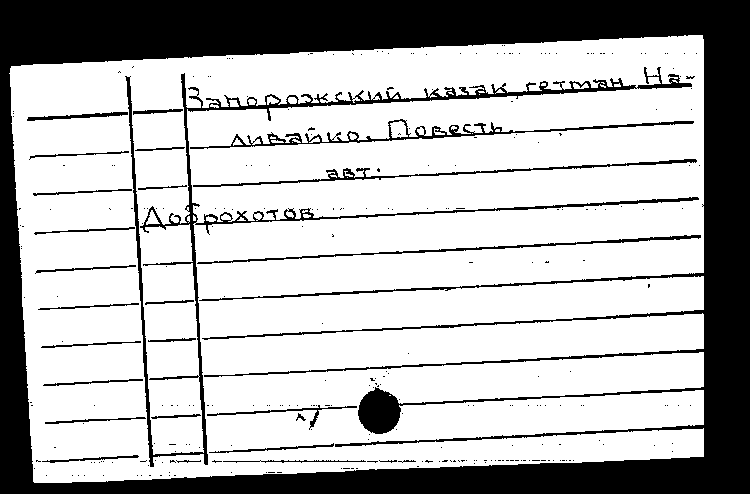 Запорожский казак гетман На-
ливайко. Повесть.
авт:
Доброхотов